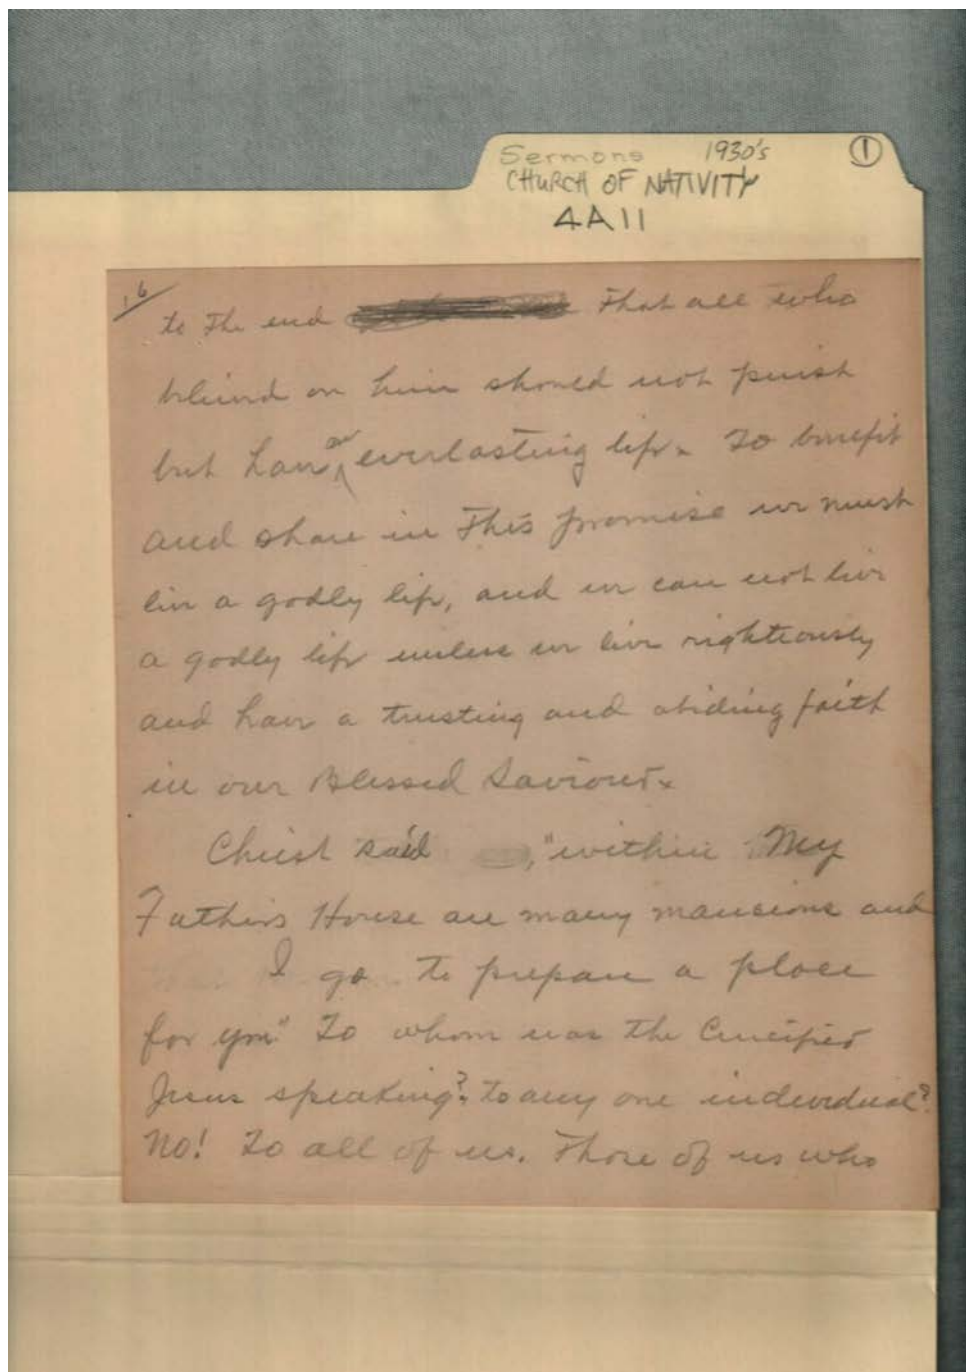 Sermons 1930's ①
CHURCH OF NATIVITY
4A11
16
to the end that all who
believed on him should not perish
but have an everlasting life. To benefit
and share in this promise we must
live a godly life, and we can not live
a godly life unless we live righteously
and have a trusting and abiding faith
in our Blessed Saviour.
Christ said, "within My
Fathers House are many mansions and
I go to prepare a place
for you" To whom was the Crucified
Jesus speaking? To any one individual?
No! To all of us. Those of us who